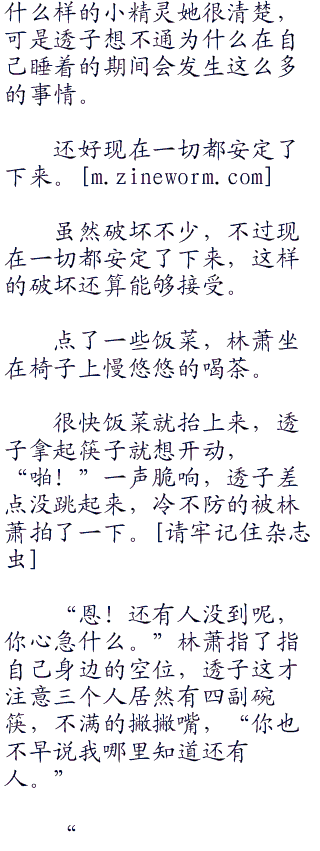 什么样的小精灵她很清楚，
可是透子想不通为什么在自
己睡着的期间会发生这么多
的事情。
还好现在一切都安定了
下来。[m.zineworm.com]
虽然破坏不少，不过现
在一切都安定了下来，这样
的破坏还算能够接受。
点了一些饭菜，林萧坐
在椅子上慢悠悠的喝茶。
很快饭菜就抬上来，透
子拿起筷子就想开动，
“啪！”一声脆响，透子差
点没跳起来，冷不防的被林
萧拍了一下。[请牢记住杂志
虫]
“恩！还有人没到呢，
你心急什么。”林萧指了指
自己身边的空位，透子这才
注意三个人居然有四副碗
筷，不满的撇撇嘴，“你也
不早说我哪里知道还有
人。”
“